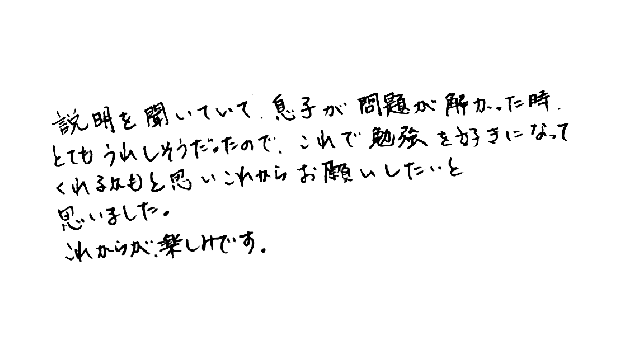 説明を聞いていて、息子が問題が解かった時、
とてもうれしそうだったので、これで勉強を好きになって
くれるかもと思いこれからお願いしたいと
思いました。
これからが、楽しみです。